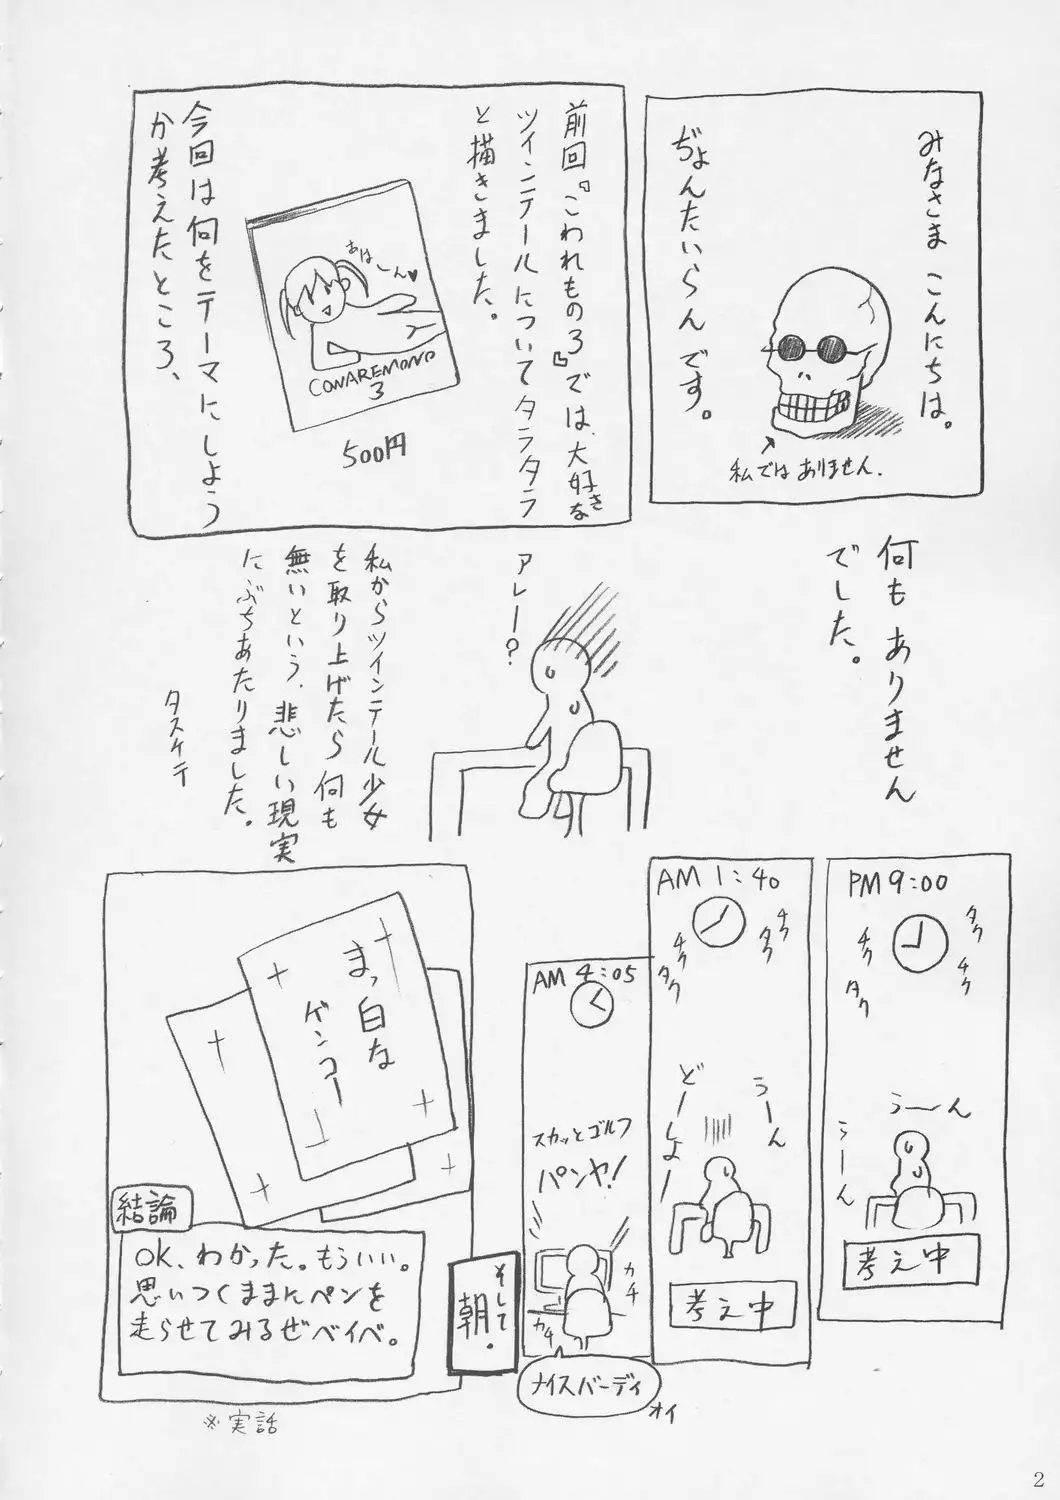 みなさま こんにちは。
ぢょんたいらんです。
私ではありません.
前回『こわれもの3』では、大好きな
ツインテールについてタラタラ
と描きました。
あはーん♥
CONAREMONO
3
500円
今回は何をテーマにしよう
か考えたところ、
何もありません
でした。
アレー?
私からツインテール少女
を取り上げたら何も
無いという、悲しい現実
にぶちあたりました。
タスケテ
PM 9:00
タク
チク
チク
タク
うーん
うーん
考え中
AM 1:40
チク
タク
チク
タク
うーん
どーしよー
考え中
AM 4:05
スカッとゴルフ
パンヤ!
カチ
カチ
ナイスバーディ
オイ
そして
朝.
まっ白な
ゲンコー
結論
OK、わかった。もういい。
思いつくままにペンを
走らせてみるぜベイベ。
※実話
2